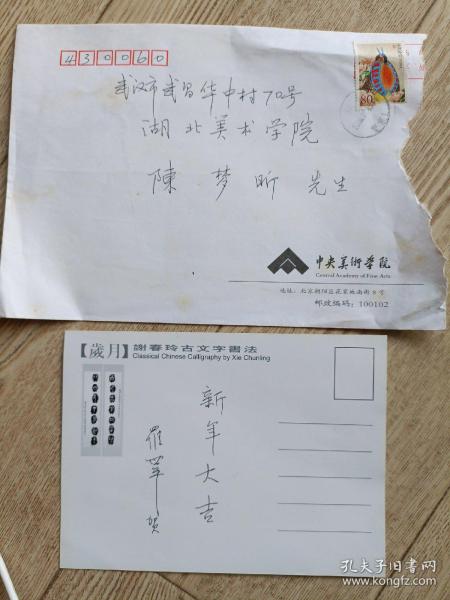 430060
80
武汉市武昌华中村70号
湖北美术学院
陳梦昕先生
中央美術学院
Central Academy of Fine Arts
地址：北京朝阳区花家地南街8号
邮政编码：100102
【歲月】謝春玲古文字書法
Classical Chinese Calligraphy by Xie Chunling
新年大吉
贺
孔夫子旧书网
www.kongfz.com